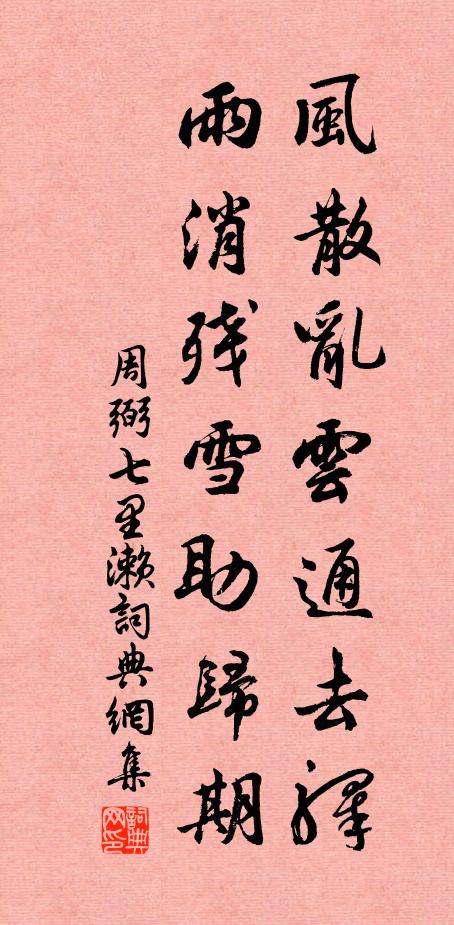 風散亂雲通去驛
雨消残雪助歸期
周弼七里濑詞典網集
詞典网印